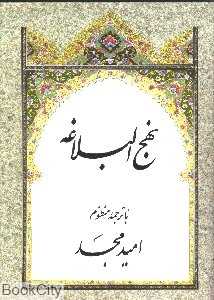 نهج البلاغه
با ترجمه منظوم
امید مجد
BookCity